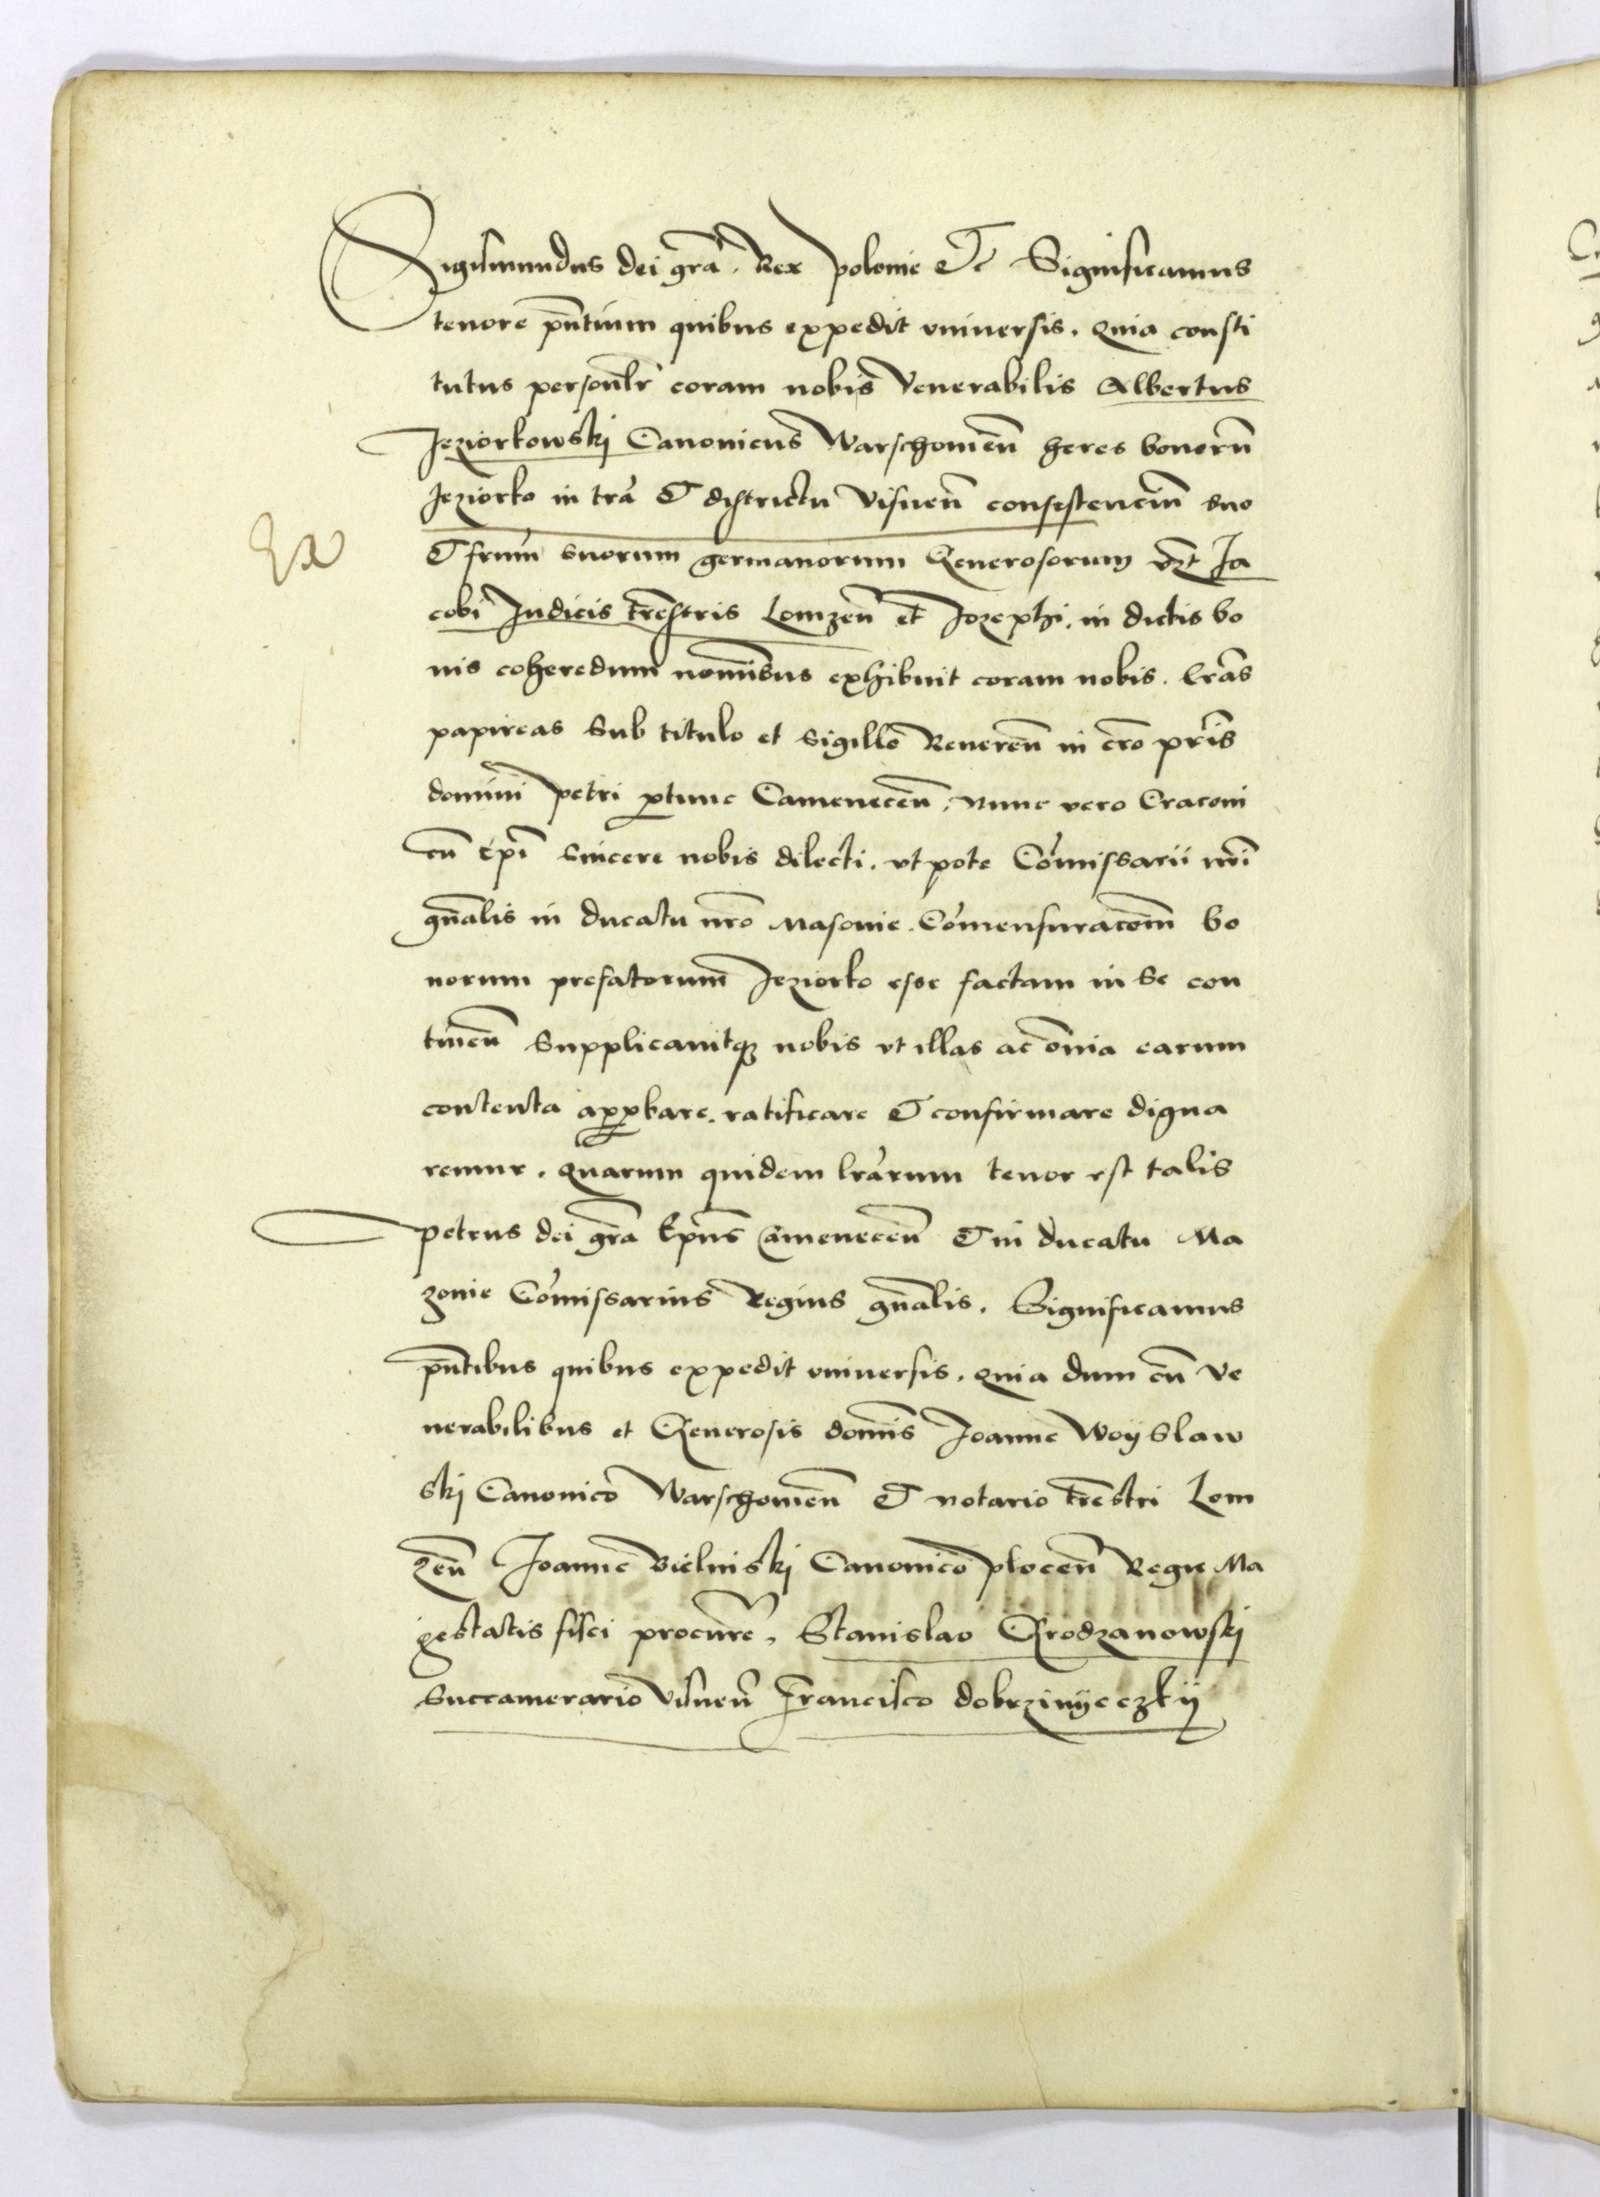 Sigismundus dei grã. Rex polonie Et Significamus
tenore pñtium quibus expedit vniversis. Quia consti
tutus personlr coram nobis Venerabilis Albertus
Jeziorkowski Canonicus Warschouieñ heres bonorũ
Jeziorko in trã Et districtu Visneñ consistenciũ suo
Ex
Et frum̃ suorum germanorum Generosorum vzt Ja
cobi Judicis trẽstris Lomzeñ et Jozephi. in dictis bo
nis coheredum nominibus exhibuit coram nobis. lrãs
papireas Sub titulo et sigillo Revereñ in cro pr̃is
domini petri ꝓtunc Cameneceñ. Nunc vero Cracoui
eñ Epĩ sincere nobis dilecti. vtpote Com̃issarii nr̃i
gñalis in ducatu nr̃o Masouie. Com̃ensuracõm bo
norum prefatorum Jeziorko esse factam in Se con
tineñ Supplicauitqꝫ nobis vt illas ac om̃ia earum
contenta apꝓbare. ratificare Et confirmare digna
remur. Quarum quidem lrãrum tenor est talis
petrus dei grã Ep̃us Cameneceñ Et in ducatu Ma
zouie Com̃issarius Regius gñalis. Significamus
pñtibus quibus expedit vniversis. Quia dum cũ Ve
nerabilibus et Generosis domĩs Joanne Woyslaw
ski Canonico Warschouieñ Et notario trẽstri Lom
zeñ Joanne Bielinski Canonico ploceñ Regie Ma
gestatis fisci procurẽ, Stanislao Grodzanowski
Succamerario Visneñ Francisco dobrzinyeczky